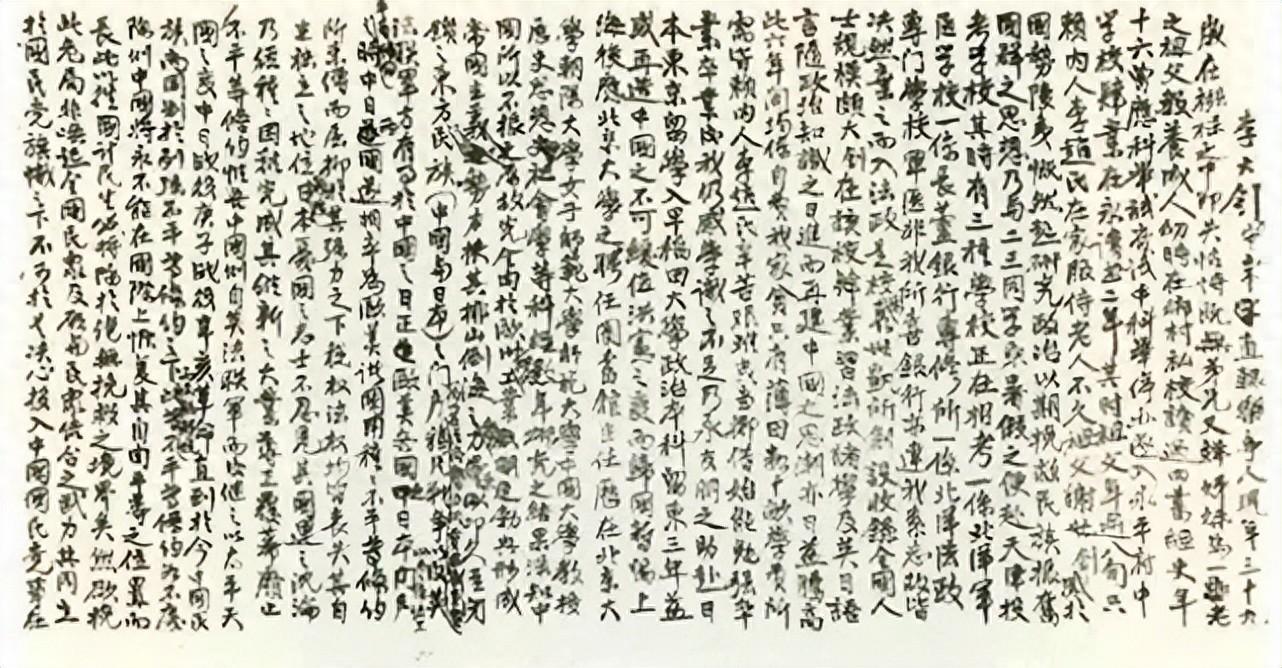 李大釗字守常直隸樂亭人現年三十九
歲在襁褓之中即失怙恃既無弟兄又鮮姊妹為一垂老
之祖父教養成人幼時在鄉村私校讀四書經史年
十六曾應科舉試府試中科舉停止遂入永平府中
學校肄業在永讀書二年其時祖父年逾八旬只
賴內人李趙氏在家服侍老人不久祖父謝世釗感於
國勢陵夷慨然起研究政治以期挽救民族振奮
國群之思想乃與二三同學乘暑假之便赴天津投
考學校其時有三種學校正在招考一係北洋軍
醫學校一係長蘆銀行專修所一係北洋法政
專門學校軍醫非我所喜銀行亦違我素志故皆
決然棄之而入法政是校為所創設收錄全國人
士規模頗大釗在該校習業習法政諸學及英日語
言隨政治知識之日進而再建中國之思潮亦日益騰高
此六年間均係自費我家貧只有薄田數十畝學費所
需皆賴內人李趙氏辛苦典當挪借始能勉強卒
業卒業後我仍感學識之不足乃承友朋之助赴日
本東京留學入早稻田大學政治本科留東三年益
感再造中國之不可緩值洪憲之變而歸國暫留上
海後應北京大學之聘任圖書館主任歷在北京大
學朝陽大學女子師範大學師範大學中國大學教授
歷史思想史社會學等科數年研究之結果深知中
國所以不振之原故完全由於歐北工業勃興形成
帝國主義勢力挾其排山倒海之力以叩久已閉
鎖之東方民族(中國與日本)之門用鴉片戰爭以後英
法聯軍方有事於中國之日正是歐美各國
時中日兩國遂相率為歐美諸國種種不平等條約
所束縛而屈抑於其強力之下稅權法權均皆喪失其自
主獨立之地位日本憂國之志士不忍見其國運之沉淪
乃經種種之困難完成其維新之大業廢止
不平等條約惟吾中國則自英法聯軍而後繼之以太平天
國之變中日戰役庚子戰役辛亥革命直到於今中國民
族尚困於列強不平等條約之下此等不平等條約如不廢
除則中國將永不能在國際上恢復其自由平等之位置而
長此以往國計民生必將陷於絕無挽救之境界矣然欲挽
此危局非喚起全國民眾及聯合民眾結合之武力共同立
於國民黨旗幟之下不可於是決心投入中國國民黨事在